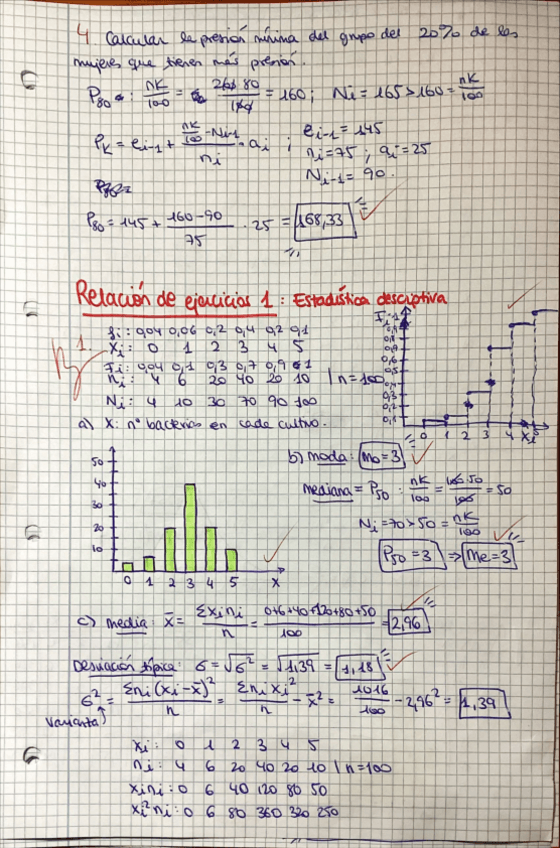 4. Calcular la presión mínima del grupo del 20% de las
mujeres que tienen más presión.
P80 : nK/100 = 200·80/100 = 160; Ni = 165 > 160 = nK/100
PK = ei-1 + (nK/100 - Ni-1)/ni · ai ; ei-1 = 145
ni = 75 ; ai = 25
Ni-1 = 90.
P80 = 145 + (160-90)/75 · 25 = 168,33
Relación de ejercicios 1: Estadística descriptiva
fi: 0,04 0,06 0,2 0,4 0,2 0,1
1. xi: 0 1 2 3 4 5
Fi: 0,04 0,1 0,3 0,7 0,9 1
ni: 4 6 20 40 20 10 | n=100
Ni: 4 10 30 70 90 100
a) X: nº bacterias en cada cultivo.
0 1 2 3 4 5 xi
50
40
30
20
10
0 1 2 3 4 5 x
b) moda: Mo=3
mediana = P50 : nK/100 = 100·50/100 = 50
Ni = 70 > 50 = nK/100
P50 = 3 ⇒ Me = 3
c) media: x̄ = Σxini/n = 0+6+40+120+80+50/100 = 2,96
Desviación típica: σ = √σ² = √1,39 = 1,18
σ² = Σni(xi-x̄)²/n = Σnixi²/n - x̄² = 1016/100 - 2,96² = 1,39
varianza
xi: 0 1 2 3 4 5
ni: 4 6 20 40 20 10 | n=100
xini: 0 6 40 120 80 50
xi²ni: 0 6 80 360 320 250